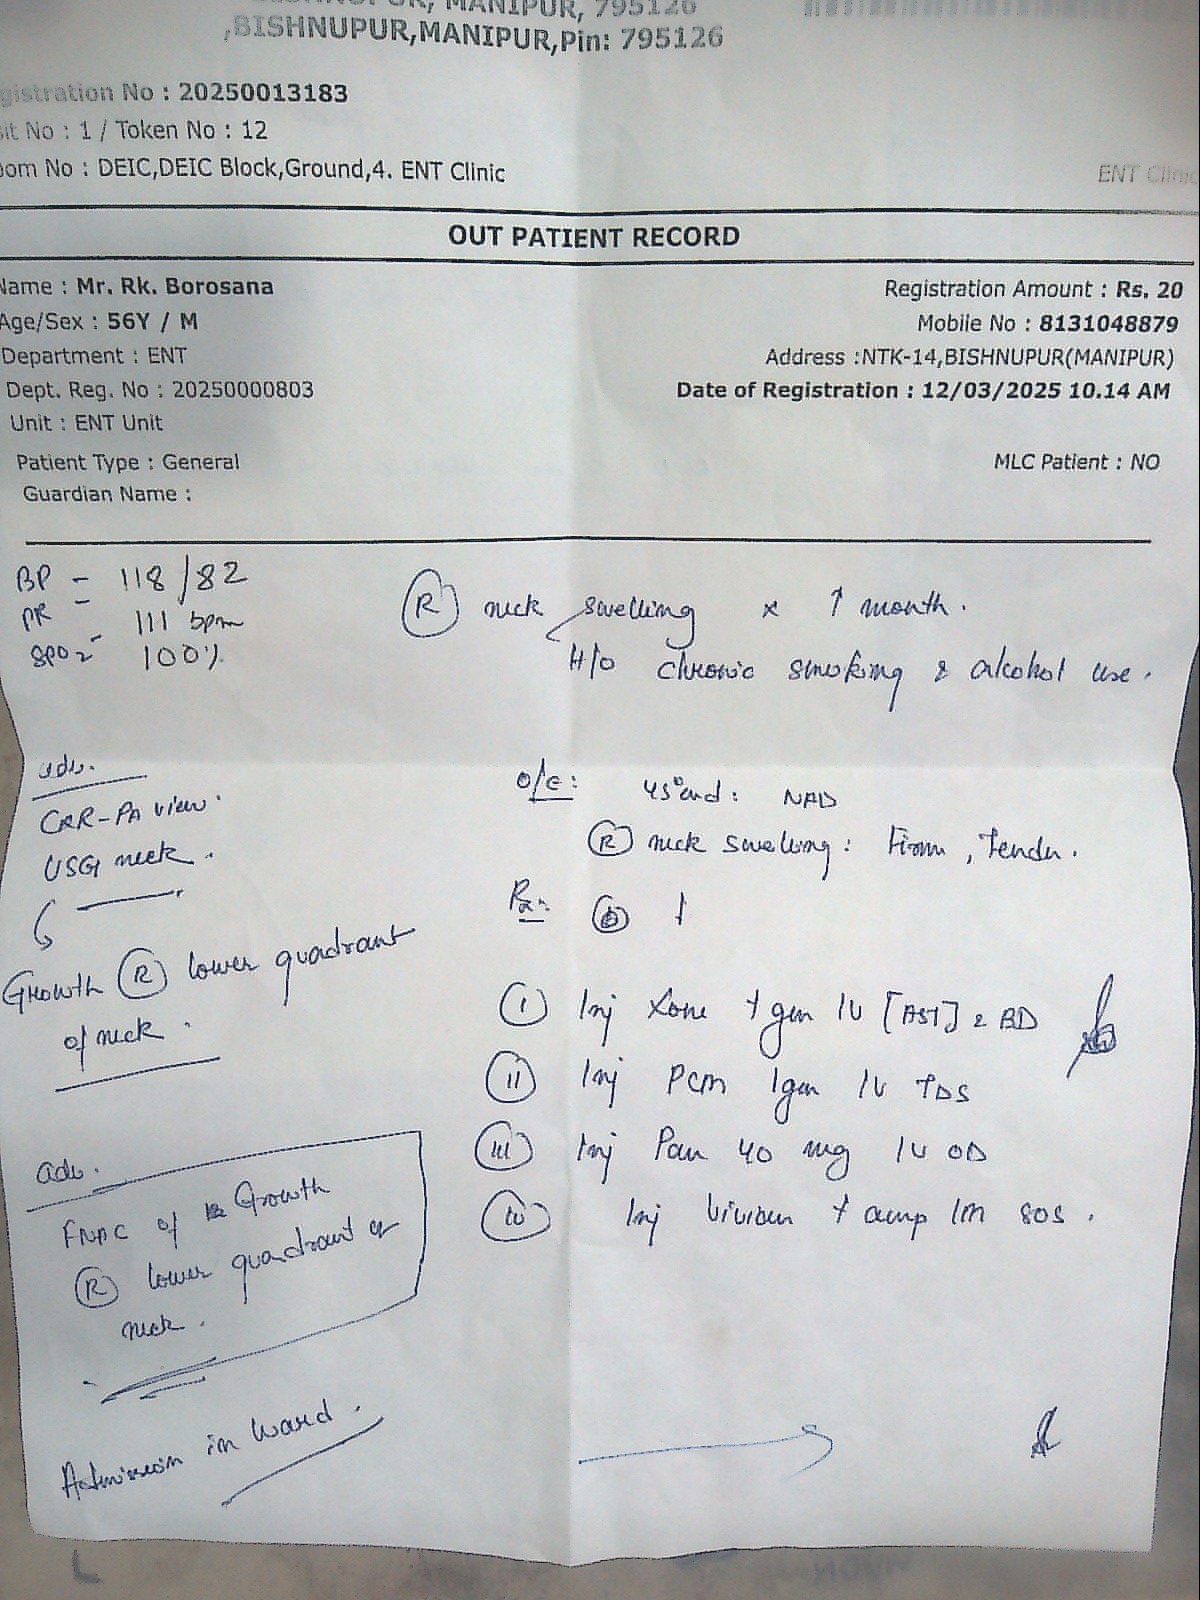 MANIPUR, 795126
,BISHNUPUR,MANIPUR,Pin: 795126
gistration No : 20250013183
sit No : 1 / Token No : 12
oom No : DEIC,DEIC Block,Ground,4. ENT Clinic
ENT Clinic
OUT PATIENT RECORD
Name : Mr. Rk. Borosana
Registration Amount : Rs. 20
Age/Sex : 56Y / M
Mobile No : 8131048879
Department : ENT
Address :NTK-14,BISHNUPUR(MANIPUR)
Dept. Reg. No : 20250000803
Date of Registration : 12/03/2025 10.14 AM
Unit : ENT Unit
Patient Type : General
MLC Patient : NO
Guardian Name :
BP - 118/82
PR - 111 bpm
SPO2 - 100%
(R) neck swelling x 1 month.
H/o chronic smoking & alcohol use.
adv.
CXR-PA view.
USG neck.
Growth (R) lower quadrant
of neck.
O/E: NAD
(R) neck swelling: Firm, Tender.
Rx:
(i) Inj Xone 1 gm IV [AST] BD
(ii) Inj PCM 1gm IV TDS
(iii) Inj Pan 40 mg IV OD
(iv) Inj 1 amp IM SOS.
adv.
FNAC of Growth
(R) lower quadrant of
neck.
Admission in Ward.